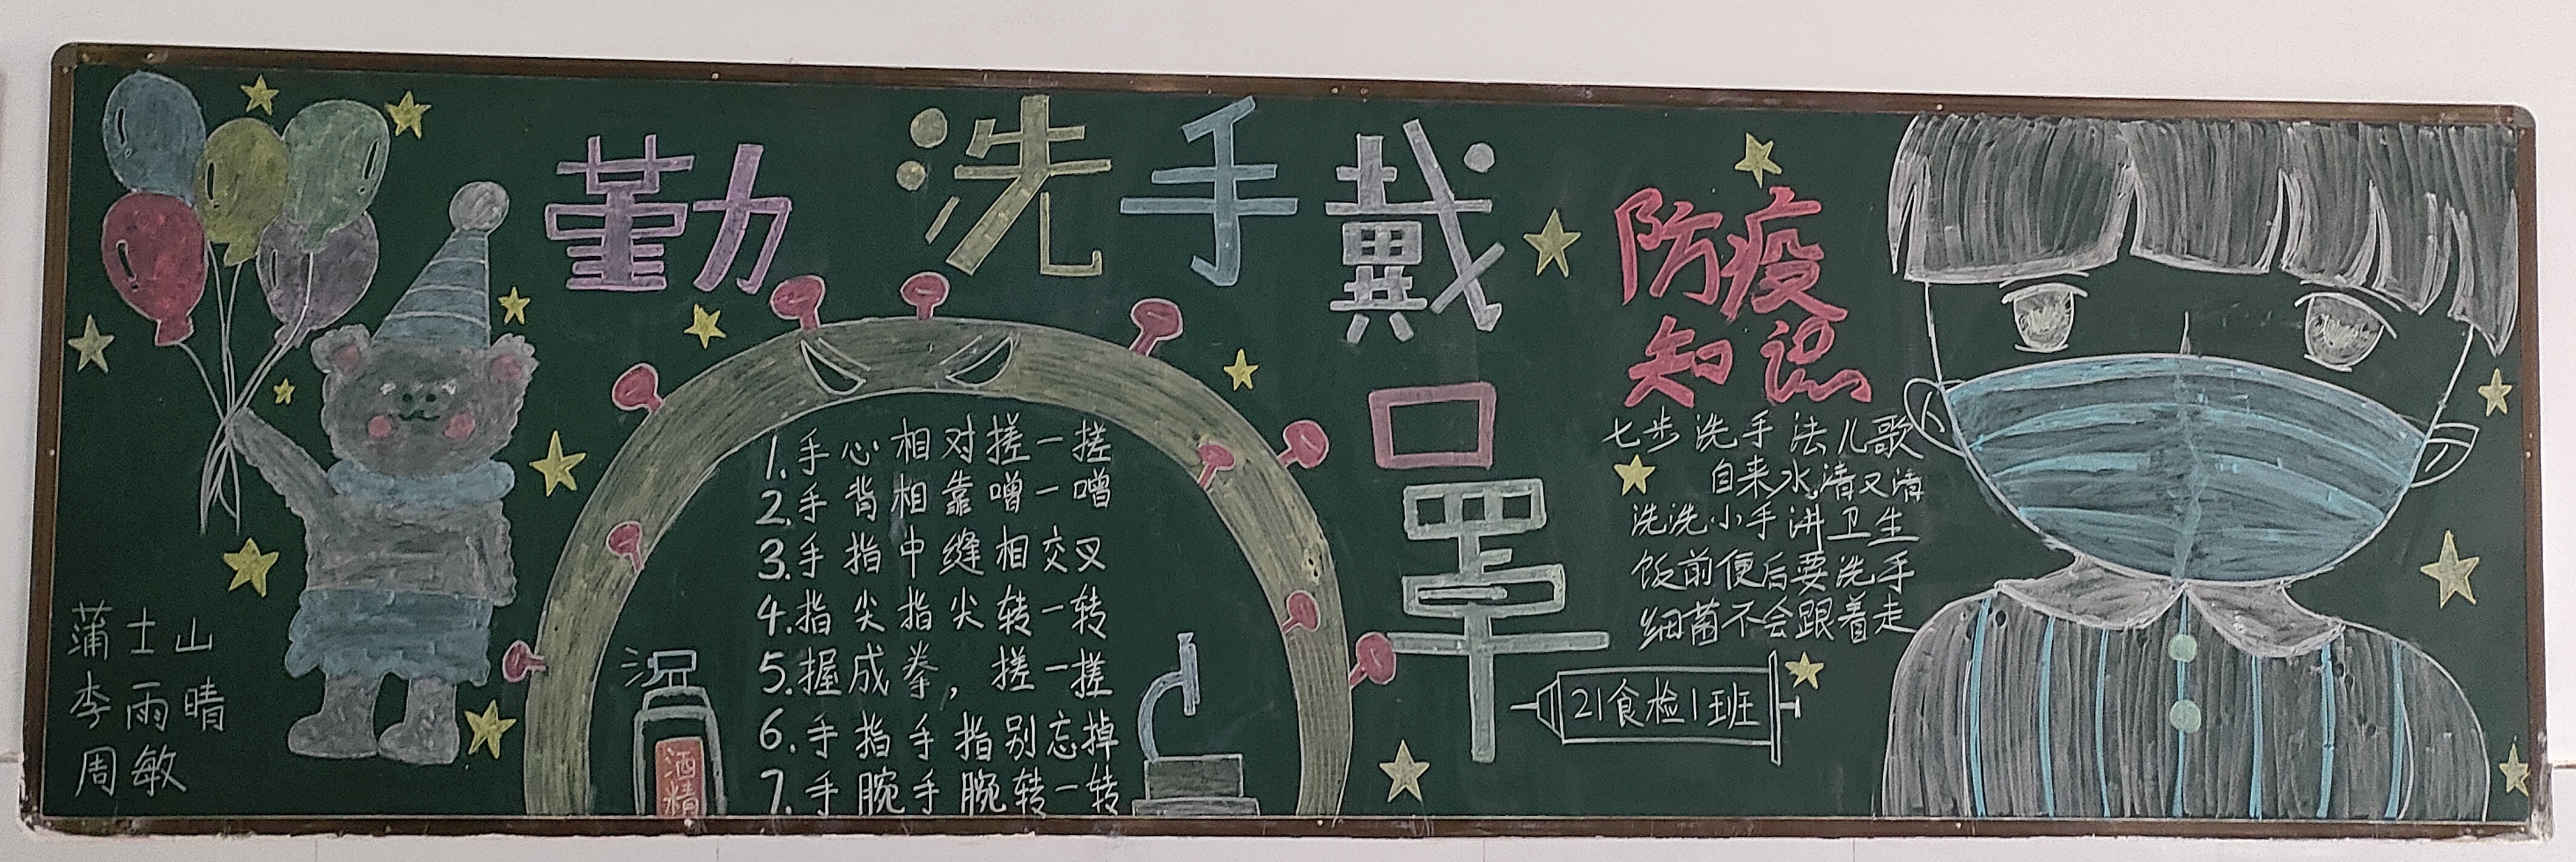 勤洗手戴口罩
防疫
知识
1.手心相对搓一搓
2.手背相靠噌一噌
3.手指中缝相交叉
4.指尖指尖转一转
5.握成拳，搓一搓
6.手指手指别忘掉
7.手腕手腕转一转
酒精
七步洗手法儿歌
自来水清又清
洗洗小手讲卫生
饭前便后要洗手
细菌不会跟着走
21食检1班
蒲士山
李雨晴
周敏